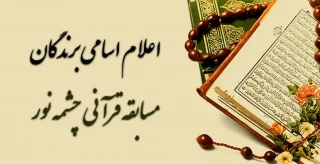 اعلام اسامی برندگان
مسابقه قرآنی چشمه نور